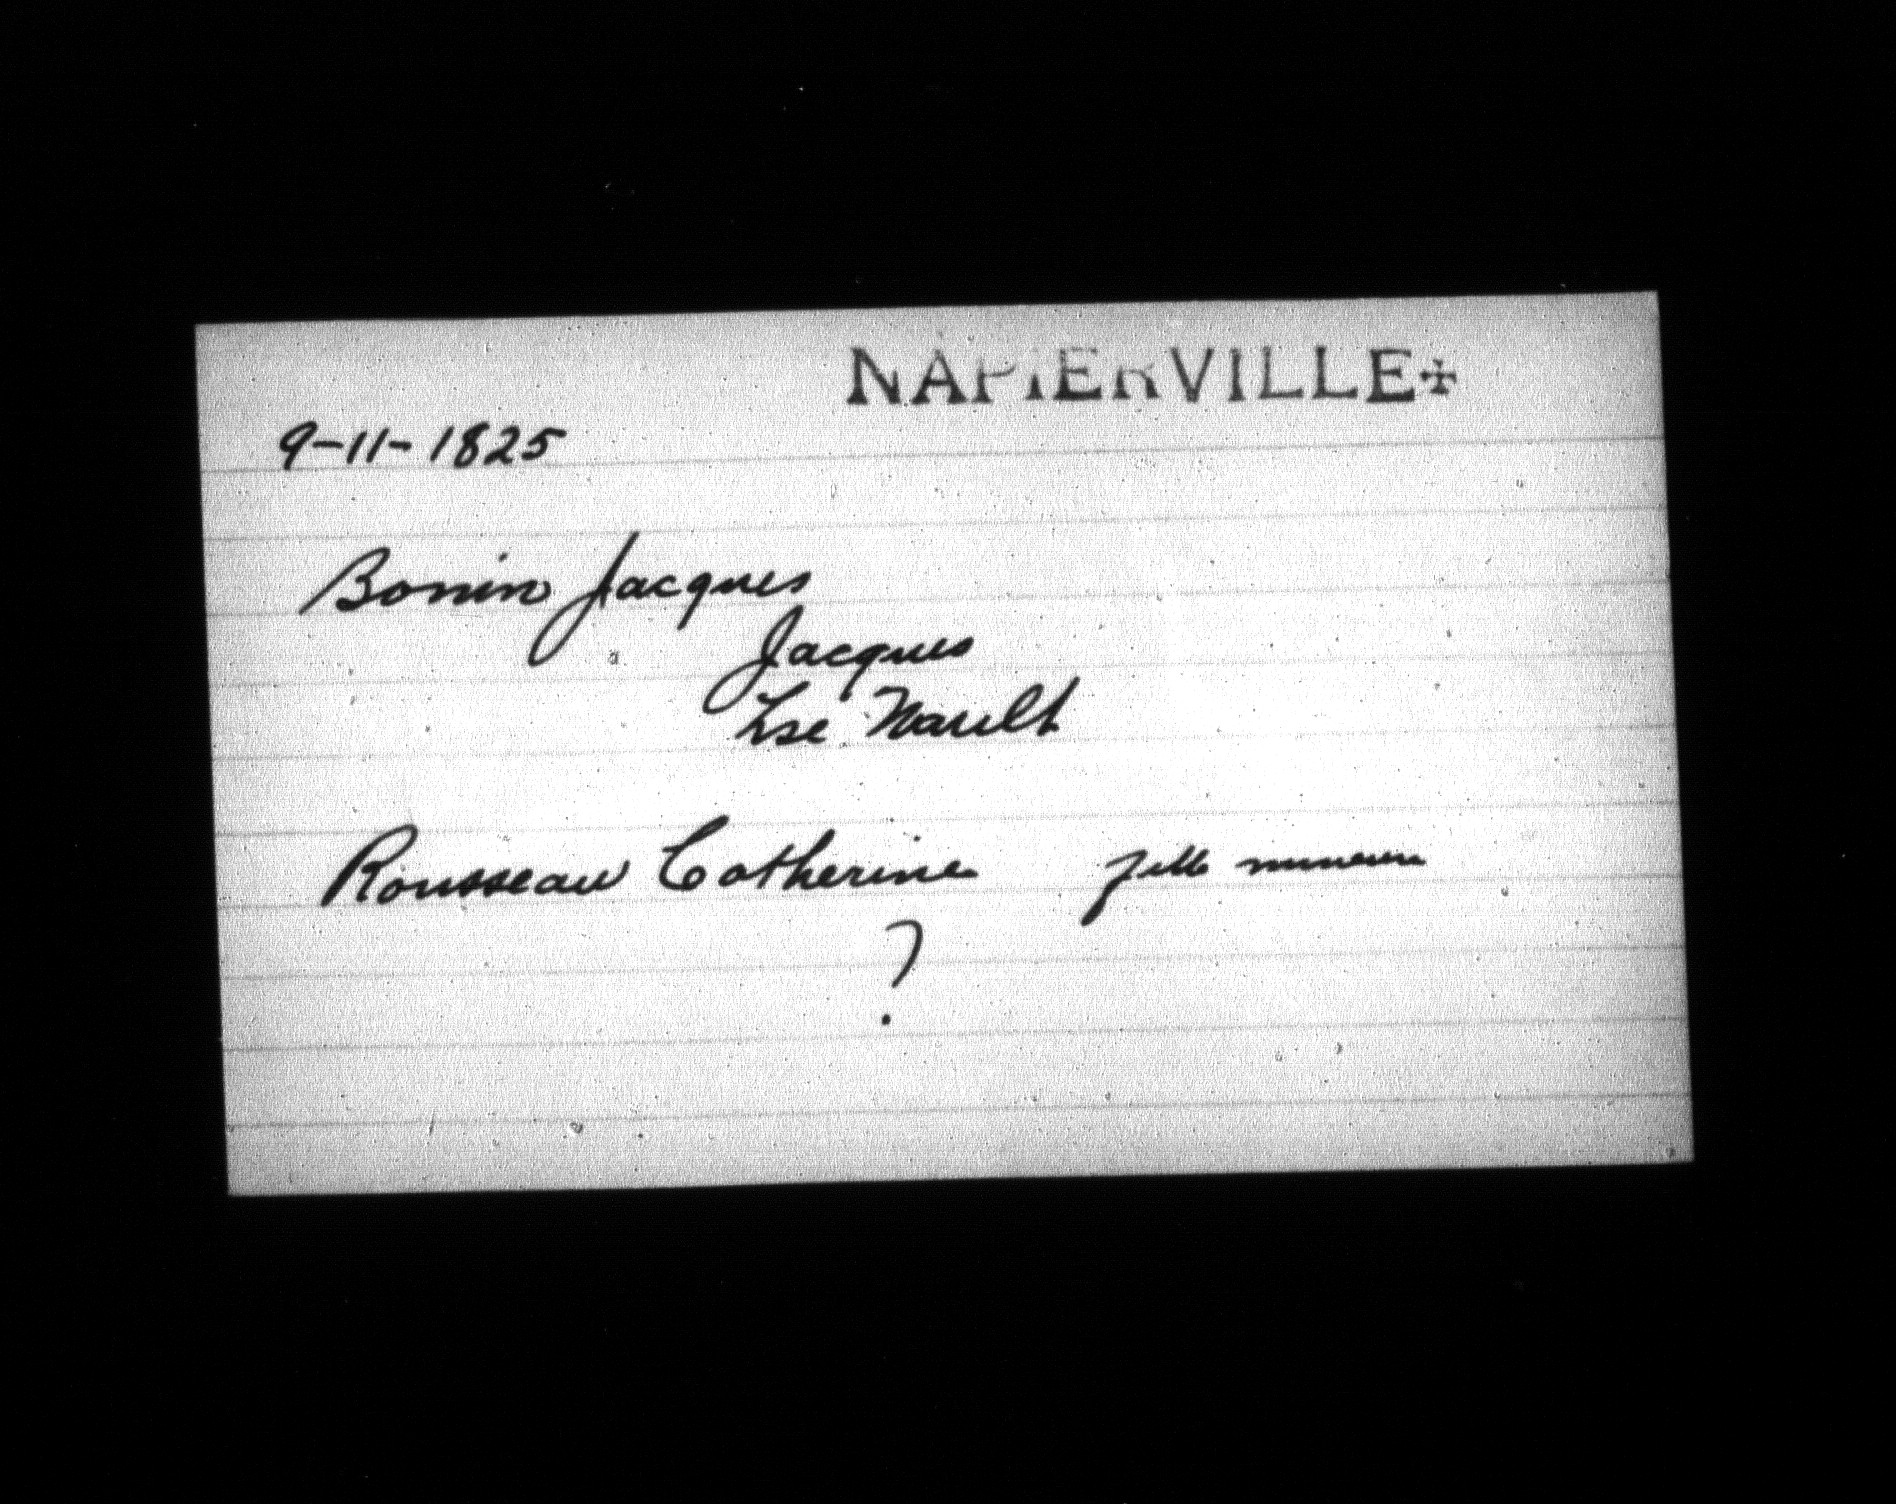 NAPIERVILLE+
9-11-1825
Bonin Jacques
Jacques
Lse Nault
Rousseau Catherine fille mineure
?